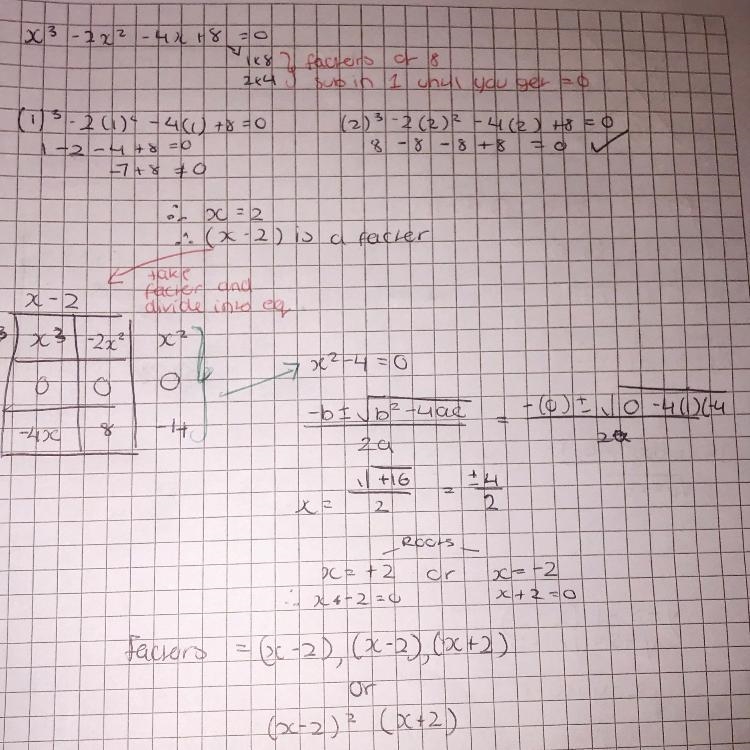 x³ - 2x² - 4x + 8 = 0
1x8 } factors of 8
2x4 } sub in 1 until you get = 0
(1)³ - 2(1)² - 4(1) + 8 = 0
1 - 2 - 4 + 8 = 0
-7 + 8 ≠ 0
(2)³ - 2(2)² - 4(2) + 8 = 0
8 - 8 - 8 + 8 = 0 ✓
∴ x = 2
∴ (x - 2) is a facter
take
facter and
divide into eq
x - 2
x³ -2x² x²
0 0 0
-4x 8 -4
x² - 4 = 0
-b ± √b² - 4ac / 2a = -(0) ± √0 - 4(1)(-4 / 2
x = √+16 / 2 = ±4 / 2
Roots
x = +2 or x = -2
∴ x + -2 = 0 x + 2 = 0
Factors = (x-2), (x-2), (x+2)
or
(x-2)² (x+2)